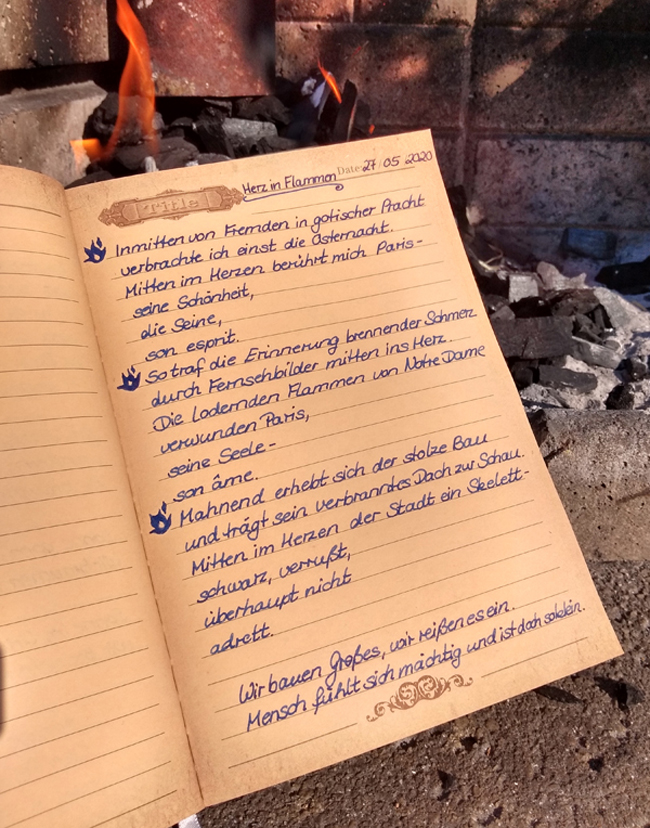 Title Herz in Flammen Date: 27/05 2020
Inmitten von Fremden in gotischer Pracht
verbrachte ich einst die Osternacht.
Mitten im Herzen berührt mich Paris-
seine Schönheit,
die Seine,
son esprit.
So traf die Erinnerung brennender Schmerz
durch Fernsehbilder mitten ins Herz.
Die lodernden Flammen von Notre Dame
verwunden Paris,
seine Seele-
son âme.
Mahnend erhebt sich der stolze Bau
und trägt sein verbranntes Dach zur Schau.
Mitten im Herzen der Stadt ein Skelett-
schwarz, verrußt,
überhaupt nicht
adrett.
Wir bauen Großes, wir reißen es ein.
Mensch fühlt sich mächtig und ist doch so klein.